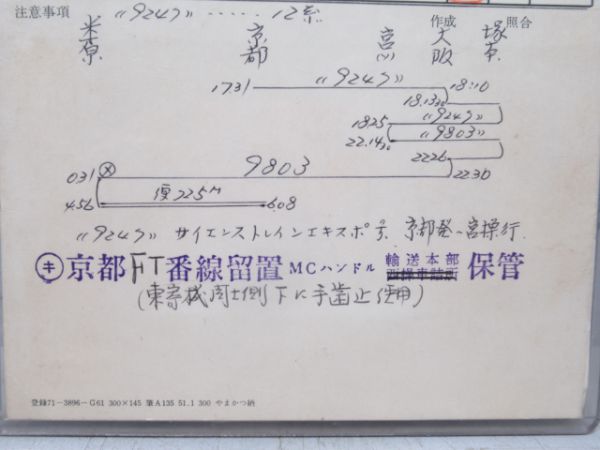 注意事項 "9249" ..... 12系 作成 照合
米原 京都 宮 大阪 塚本
1731 "9249" 18:10
18.13
1825 "9249"
22.14 "9803"
2226
031 9803 2230
復725M
456 6.08
"9249" サイエンストレインエキスポ号. 京都発〜宮操行.
キ 京都FT番線留置 MCハンドル 輸送本部 保管
(東寄機関士側下に手歯止使用)
登録71-3896-G61 300×145 筆A135 51.1 300 やまかつ納